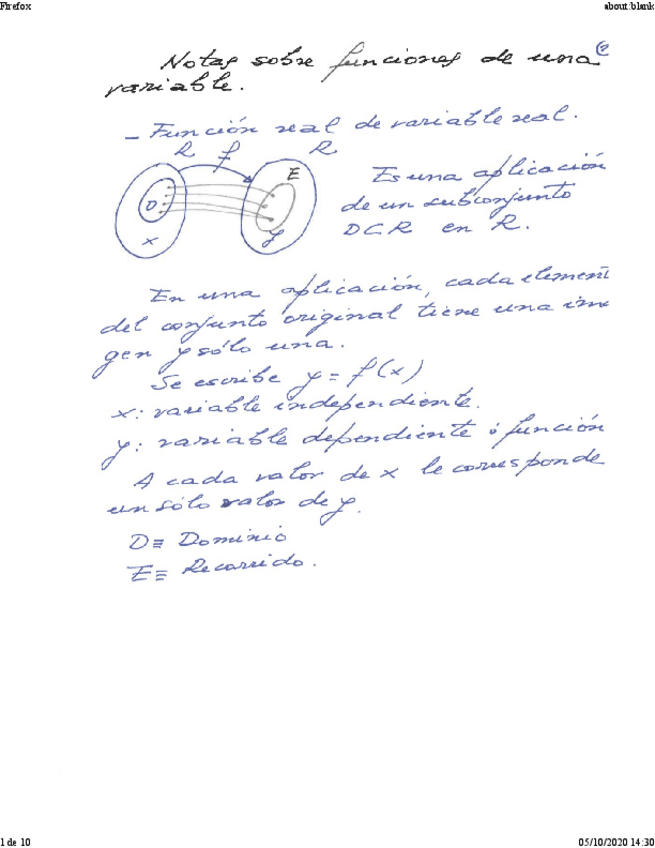 Firefox
about:blank
Notas sobre funciones de una
variable.
- Función real de variable real.
R f R
E
D
x
y
Es una aplicación
de un subconjunto
D⊂R en R.
En una aplicación, cada element
del conjunto original tiene una ima
gen y sólo una.
Se escribe y = f(x)
x: variable independiente.
y: variable dependiente ó función
A cada valor de x le corresponde
un sólo valor de y.
D≡ Dominio
E≡ Recorrido.
1 de 10
05/10/2020 14:30